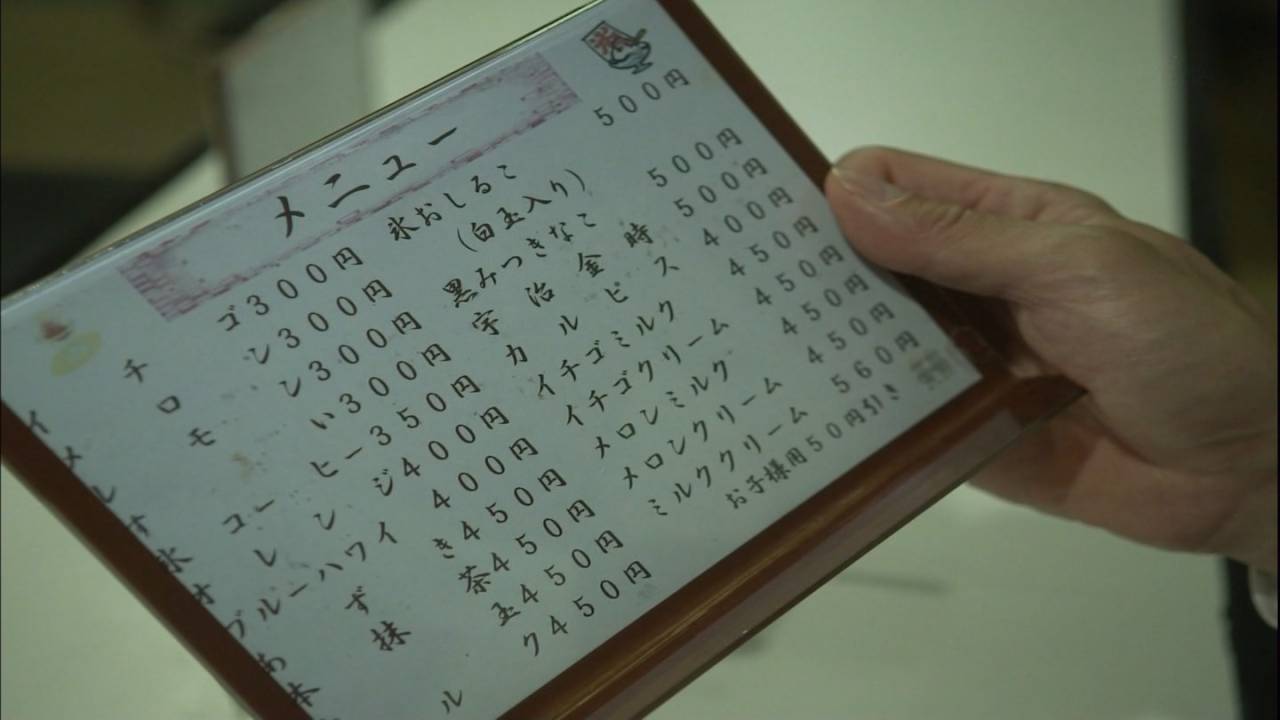 氷
メニュー
イチゴ300円
メロン300円
レモン300円
すい300円
氷コーヒー350円
オレンジ400円
ブルーハワイ400円
あずき450円
本抹茶450円
玉450円
ルク450円
氷おしるこ 500円
(白玉入り)
黒みつきなこ 500円
宇治金時 500円
カルピス 400円
イチゴミルク 450円
イチゴクリーム 450円
メロンミルク 450円
メロンクリーム 450円
ミルククリーム 560円
お子様用50円引き